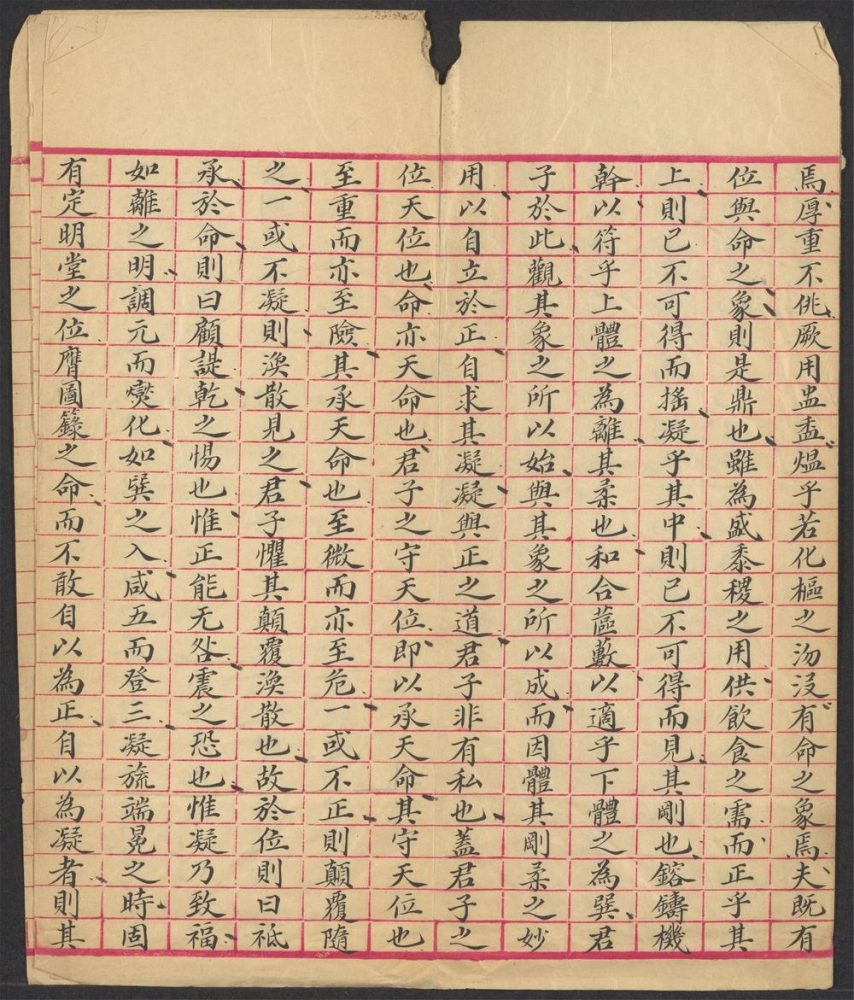 焉厚重不佻厥用盅盉熅乎若化樞之沕沒有命之象焉夫既有
位與命之象則是鼎也雖為盛黍稷之用供飲食之需而正乎其
上則已不可得而搖凝乎其中則已不可得而見其剛也鎔鑄機
幹以符乎上體之為離其柔也和合蘊藪以適乎下體之為巽君
子於此觀其象之所以始與其象之所以成而因體其剛柔之妙
用以自立於正自求其凝凝與正之道君子非有私也蓋君子之
位天位也命亦天命也君子之守天位即以承天命其守天位也
至重而亦至險其承天命也至微而亦至危一或不正則顛覆隨
之一或不凝則渙散見之君子懼其顛覆渙散也故於位則曰祗
承於命則曰顧諟乾之惕也惟正能无咎震之恐也惟凝乃致福
如離之明調元而燮化如巽之入咸五而登三凝旒端冕之時固
有定明堂之位膺圖籙之命而不敢自以為正自以為凝者則其